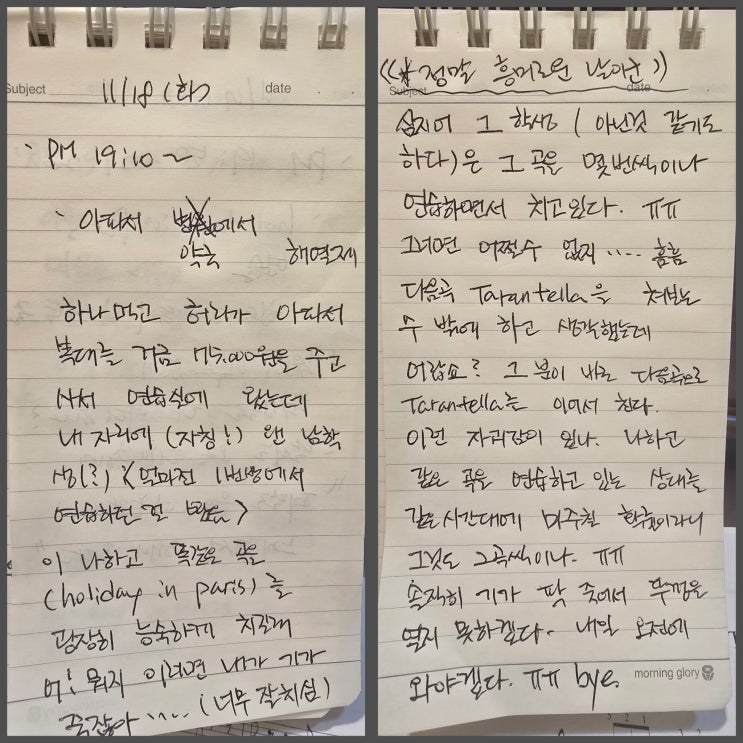 Subject
date
11/18 (화)
PM 19:10 ~
아파서 병원에서
약국 해열제
하나 먹고 허리가 아파서
복대를 거금 75,000원을 주고
사서 연습실에 왔는데
내 자리에 (자칭!) 왠 남학
생(?) <얼마전 1번방에서
연습하던 걸 봤음>
이 나하고 똑같은 곡을
(holiday in paris)를
굉장히 능숙하게 치길래
어! 뭐지 이러면 내가 기가
죽잖아 ···· (너무 잘치심)
((* 정말 흥미로운 날이군))
Subject
date
심지어 그 학생 ( 아닌것 같기도
하다)은 그 곡을 몇번씩이나
연습하면서 치고있다. ㅠㅠ
그러면 어쩔수 없지 ···· 흠흠
다음곡 Tarantella을 쳐보는
수 밖에 하고 생각했는데
어랍쇼? 그 분이 나는 다음곡으로
Tarantella를 이어서 친다.
이런 자괴감이 있나. 나하고
같은 곡을 연습하고 있는 상대를
같은시간대에 마주칠 확률이라니
그것도 2곡씩이나. ㅠㅠ
솔직히 기가 팍 죽어서 뚜껑을
열지 못하겠다. 내일 오전에
와야겠다. ㅠㅠ bye.
morning glory